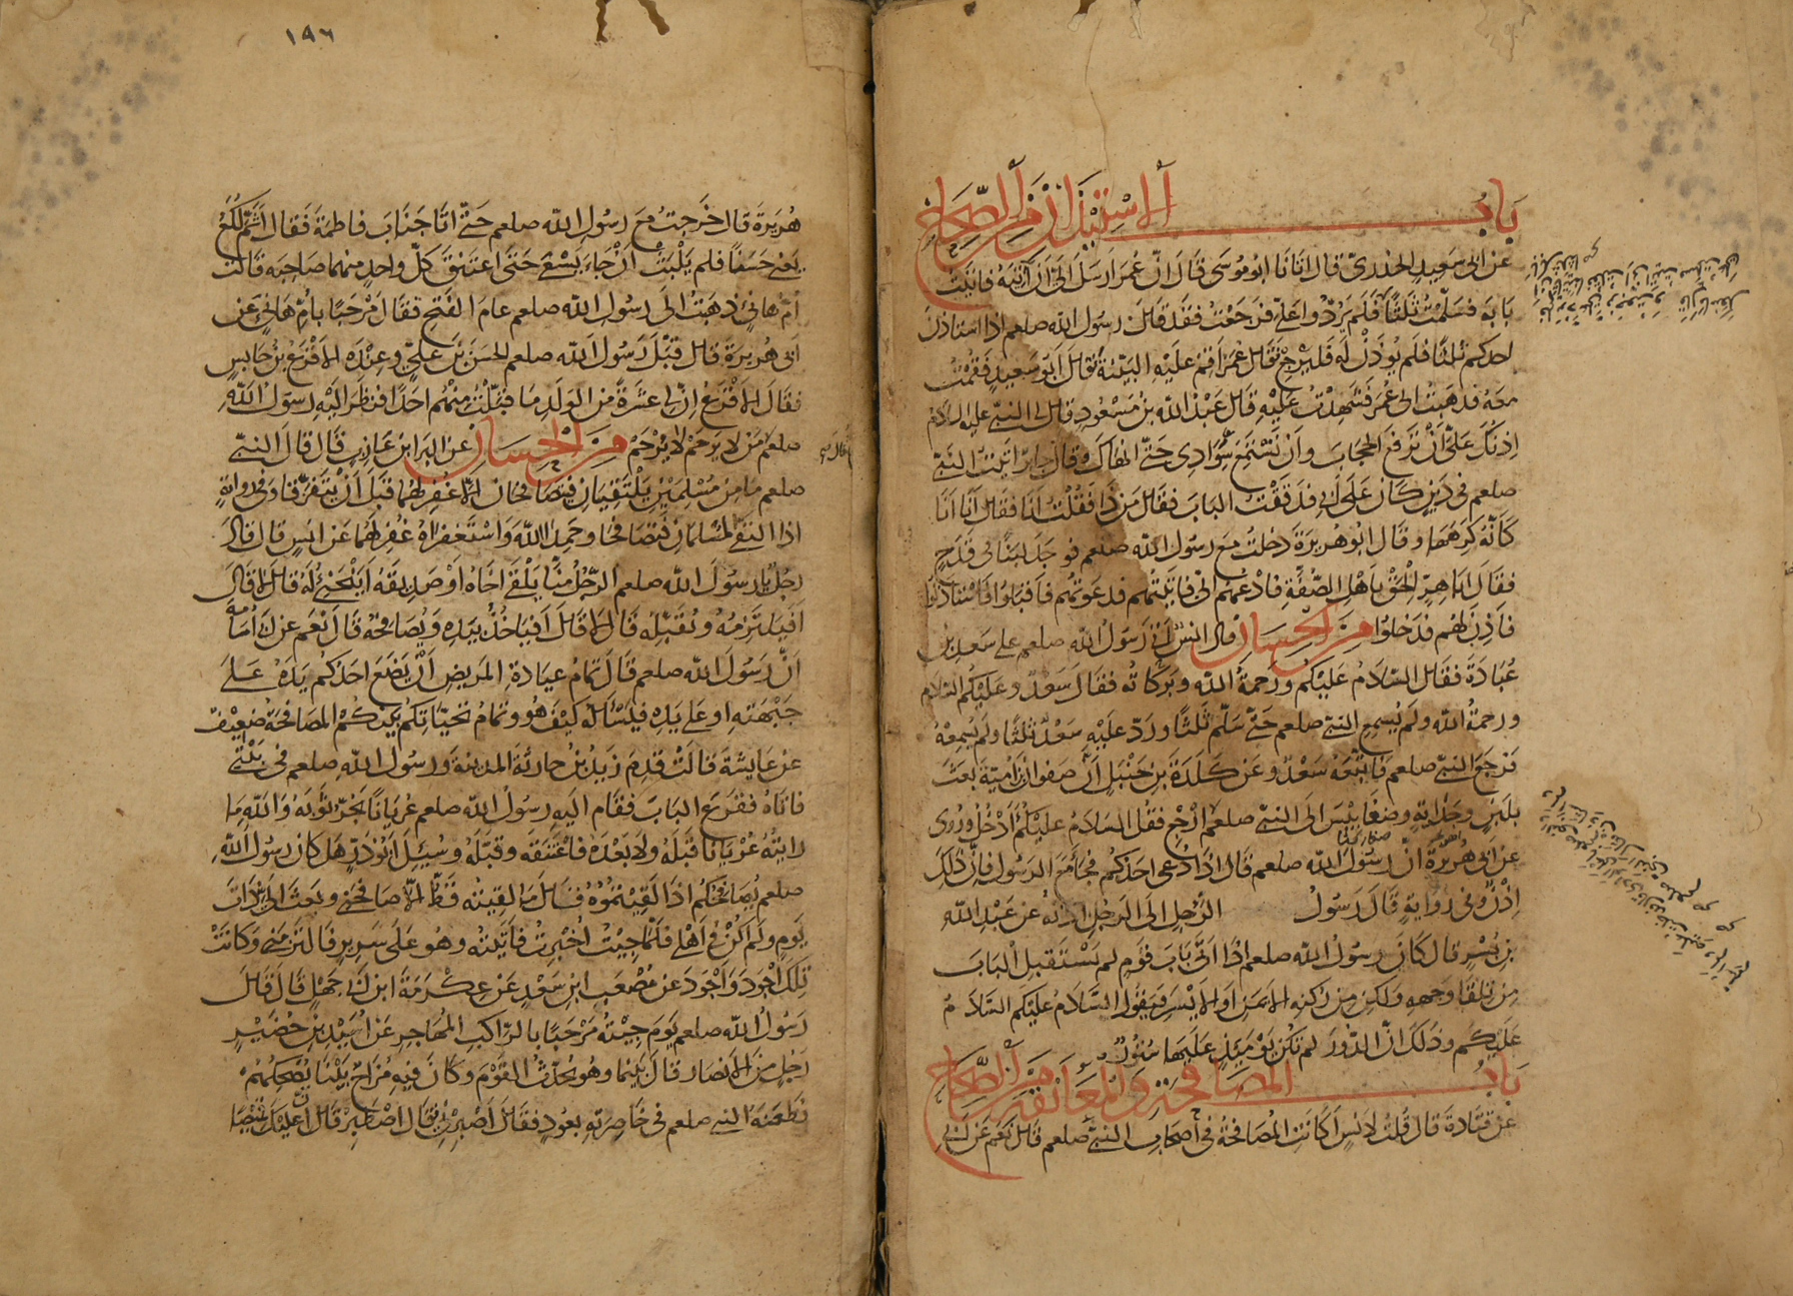 باب الاستيذان من الصحاح
عن ابى سعيد الخدرى قال اتانا ابو موسى قال ان عمر ارسل الى ان آتيه فاتيت
بابه فسلمت ثلثا فلم يرد على فرجعت فقد قال رسول الله صلعم اذا استاذن
احدكم ثلثا فلم يوذن له فليرجع فقال عمر اقم عليه البينة قال ابو سعيد فقمت
معه فذهبت الى عمر فشهدت عليه قال عبد الله بن مسعود قال لى النبى عليه السلام
اذنك على ان ترفع الحجاب وان تستمع سوادى حتى انهاك وقال جابر اتيت النبى
صلعم فى دين كان على ابى فدققت الباب فقال من ذا فقلت انا فقال انا انا
كانه كرهها وقال ابو هريرة دخلت مع رسول الله صلعم فوجد لبنا فى قدح
فقال ابا هر الحق باهل الصفة فادعهم الى فاتيتهم فدعوتهم فاقبلوا فاستاذنوا
فاذن لهم فدخلوا من الحسان قال انس ان رسول الله صلعم على سعد بن
عبادة فقال السلام عليكم ورحمة الله وبركاته فقال سعد وعليكم السلام
ورحمة الله ولم يسمع النبى صلعم حتى سلم ثلثا ورد عليه سعد ثلثا ولم يسمعه
فرجع النبى صلعم فاتبعه سعد وعن كلدة بن حنبل ان صفوان بن امية بعث
بلبن وجداية وضغابيس الى النبى صلعم ارجع فقل السلام عليكم أادخل وروى
عن ابى هريرة ان رسول الله صلعم قال اذا دعى احدكم فجاء مع الرسول فان ذلك
اذن وفى رواية قال رسول الرجل الى الرجل اذنه عن عبد الله
بن بسر قال كان رسول الله صلعم اذا اتى باب قوم لم يستقبل الباب
من تلقا وجهه ولكن من ركنه الايمن او الايسر فيقول السلام عليكم السلام
عليكم وذلك ان الدور لم تكن يومئذ عليها ستور
باب المصافحة والمعانقة من الصحاح
عن قتادة قال قلت لانس اكانت المصافحة فى اصحاب النبى صلعم قال نعم عن ابى
١٩٦
هريرة قال خرجت مع رسول الله صلعم حتى اتا جناب فاطمة فقال اثم لكع
يعنى حسنا فلم يلبث ان جاء يسعى حتى اعتنق كل واحد منهما صاحبه قالت
ام هانئ ذهبت الى رسول الله صلعم عام الفتح فقال مرحبا بام هانئ عن
ابى هريرة قال قبل رسول الله صلعم الحسن بن على وعنده الاقرع بن حابس
فقال الاقرع ان لى عشرة من الولد ما قبلت منهم احدا فنظر اليه رسول الله
صلعم من لا يرحم لا يرحم من الحسان عن البرا بن عازب قال قال النبى
صلعم ما من مسلمين يلتقيان فيتصافحان الا غفر لهما قبل ان يتفرقا وفى رواية
اذا التقى المسلمان فتصافحا وحمدا الله واستغفراه غفر لهما عن انس قال قال
رجل يا رسول الله صلعم الرجل منا يلقى اخاه او صديقه اينحنى له قال لا قال
افيلتزمه ويقبله قال لا قال افياخذ بيده ويصافحه قال نعم عن ابى امامة
ان رسول الله صلعم قال تمام عيادة المريض ان يضع احدكم يده على
جبهته او على يده فيسأله كيف هو وتمام تحياتكم بينكم المصافحة ضعيف
عن عايشة قالت قدم زيد بن حارثة المدينة ورسول الله صلعم فى بيتى
فاتاه فقرع الباب فقام اليه رسول الله صلعم عريانا يجر ثوبه والله ما
رايته عريانا قبله ولا بعده فاعتنقه وقبله وسيل ابو ذر هل كان رسول الله
صلعم يصافحكم اذا لقيتموه قال ما لقيته قط الا صافحنى وبعث الى ذات
يوم ولم اكن فى اهلى فلما جيت اخبرت فاتيته وهو على سرير فالتزمنى وكانت
تلك اجود واجود عن مصعب ابن سعد عن عكرمة ابن ابى جهل قال قال
رسول الله صلعم يوم جيته مرحبا بالراكب المهاجر عن اسيد بن حضير
رجل من الانصار قال بينما وهو يحدث القوم وكان فيه مزاح بينا يضحكهم
فطعنه النبى صلعم فى خاصرته بعود فقال اصبرنى قال اصطبر قال ان عليك قميصا